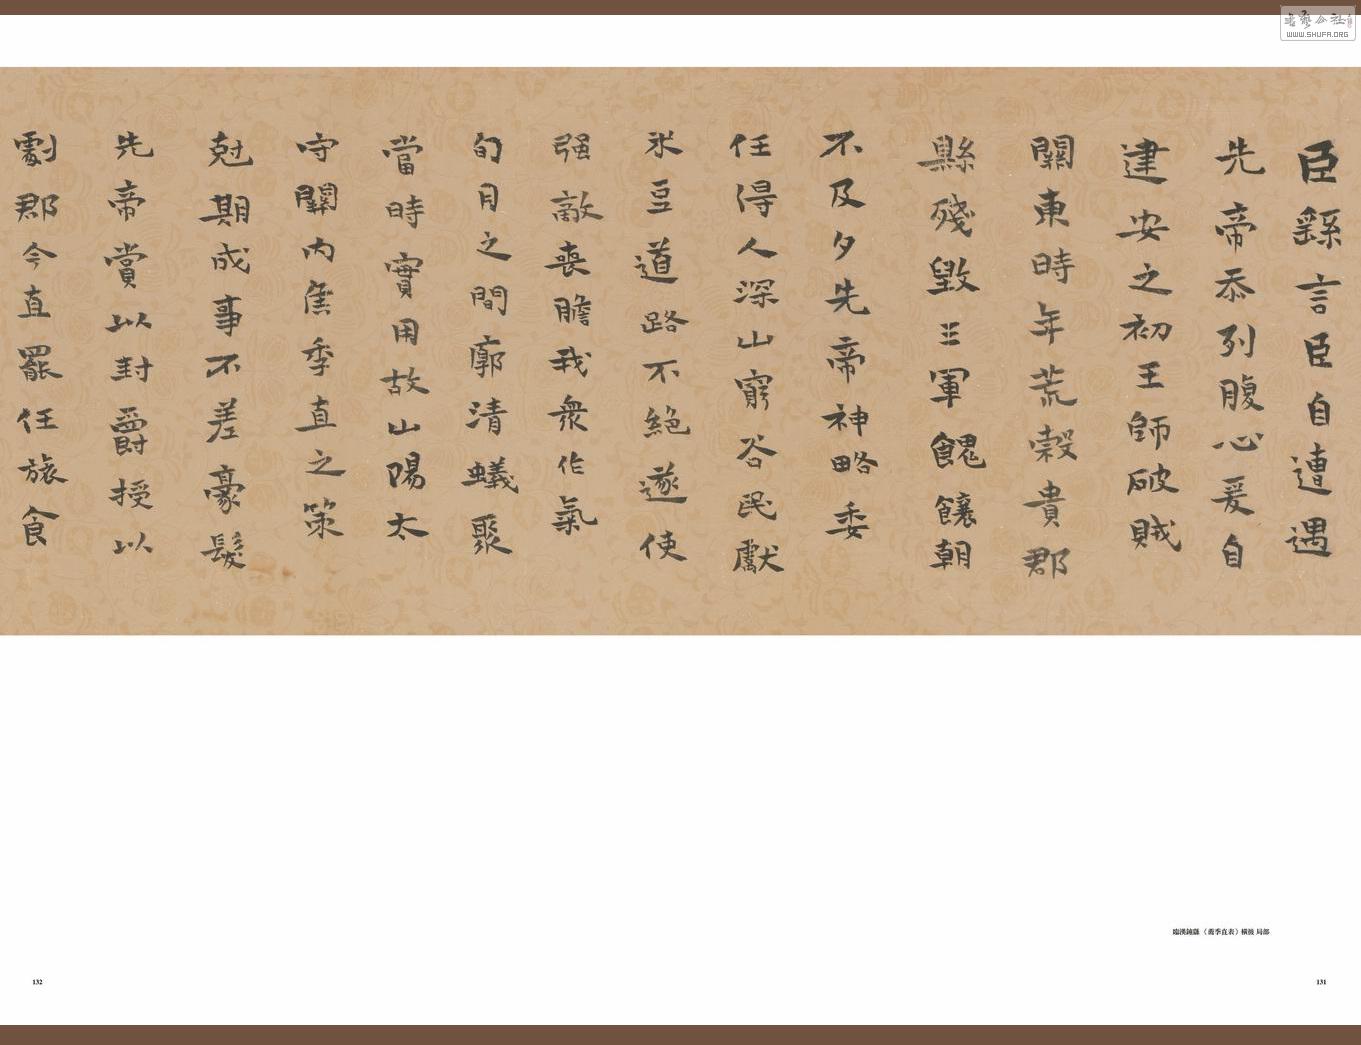 臣繇言臣自遭遇
先帝忝列腹心爰自
建安之初王師破賊
關東時年荒穀貴郡
縣殘毀三軍餽饟朝
不及夕先帝神略委
任得人深山窮谷民獻
米豆道路不絕遂使
强敵喪膽我衆作氣
旬月之間廓清蟻聚
當時實用故山陽太
守關內侯季直之策
尅期成事不差豪髮
先帝賞以封爵授以
劇郡今直罷任旅食
臨漢鍾繇《薦季直表》橫披 局部
131
132
WWW.SHUFA.ORG